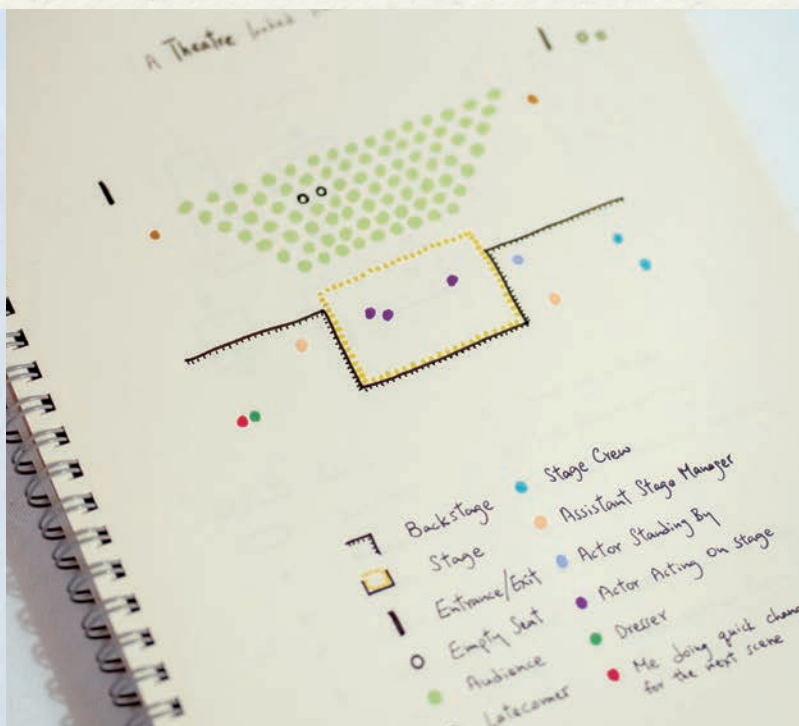 A Theatre looked
Backstage
Stage
Entrance/Exit
Empty Seat
Audience
Latecomer
Stage Crew
Assistant Stage Manager
Actor Standing By
Actor Acting On Stage
Dresser
Me doing quick change
for the next scene